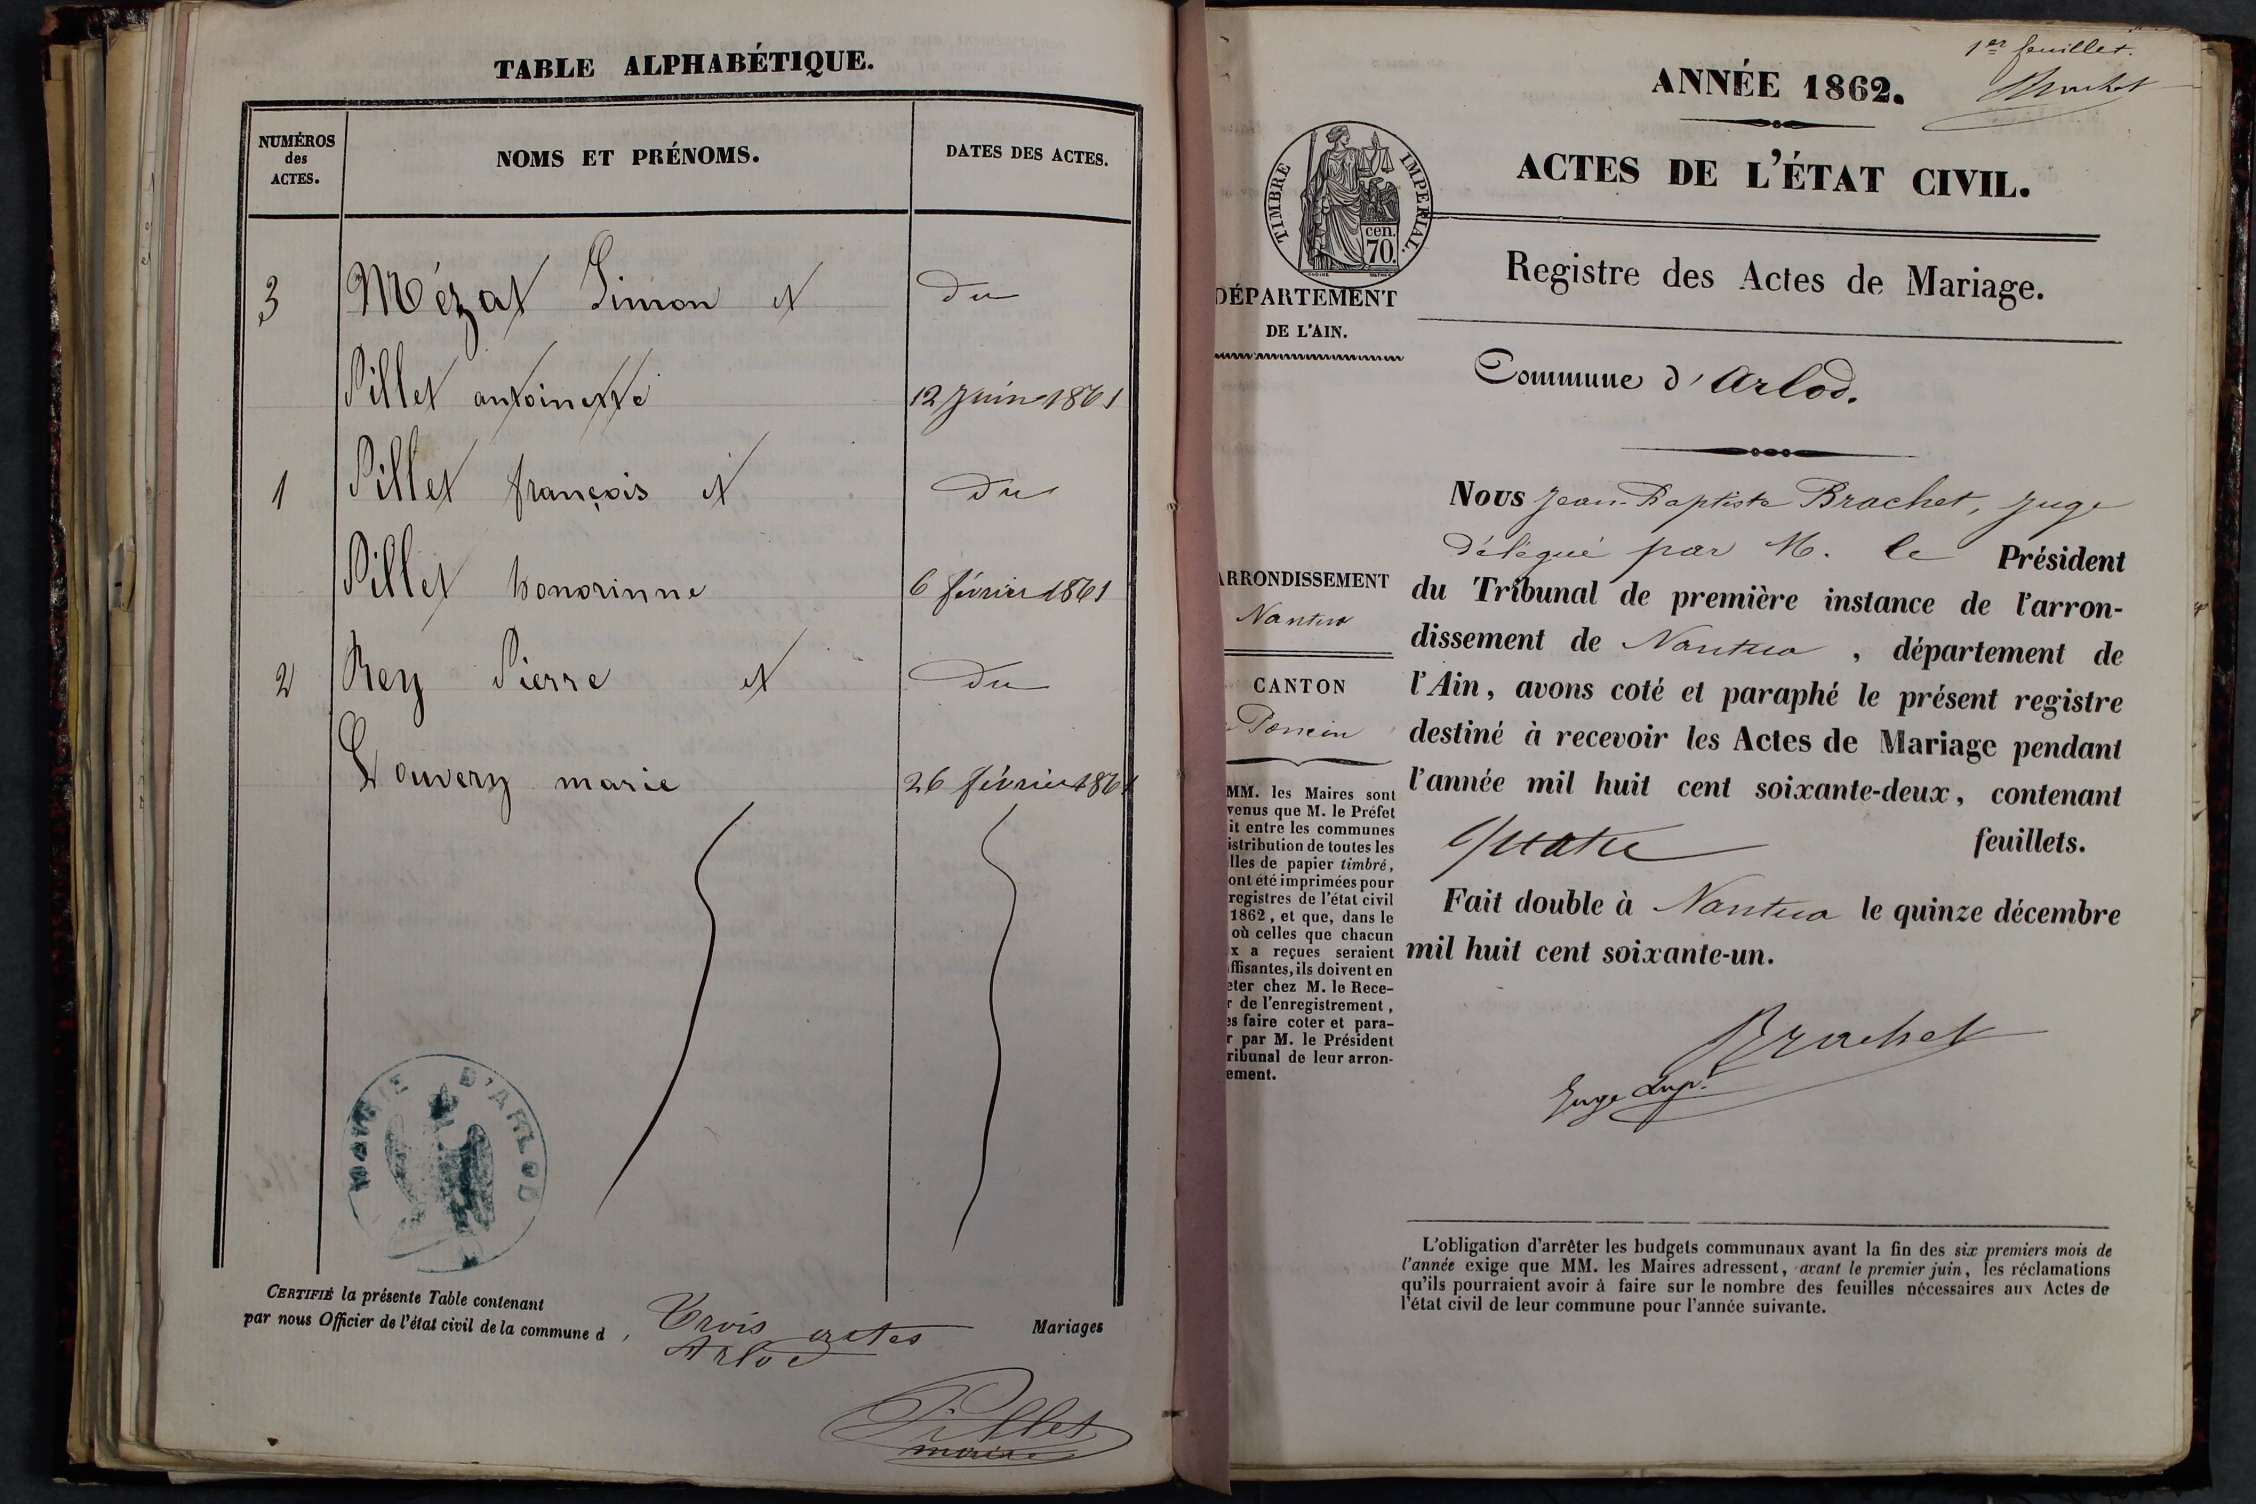 TABLE ALPHABÉTIQUE.
NUMÉROS
des
ACTES.
NOMS ET PRÉNOMS.
DATES DES ACTES.
3 Mézat Simon et du
Pillet antoinette 12 juin 1861
1 Pillet françois et du
Pillet honorinne 6 février 1861
2 Rey Pierre et du
Louvery marie 26 février 1861
MAIRIE D'ARLOD
CERTIFIÉ la présente Table contenant Trois actes Mariages
par nous Officier de l'état civil de la commune d' Arlod
Pillet
maire
1er feuillet.
Brachet
ANNÉE 1862.
ACTES DE L'ÉTAT CIVIL.
TIMBRE IMPÉRIAL.
cen.
70.
Registre des Actes de Mariage.
DÉPARTEMENT
DE L'AIN.
Commune d'Arlod.
ARRONDISSEMENT
Nantua
CANTON
Poncin
MM. les Maires sont
venus que M. le Préfet
it entre les communes
istribution de toutes les
lles de papier timbré,
ont été imprimées pour
registres de l'état civil
1862, et que, dans le
où celles que chacun
x a reçues seraient
ffisantes, ils doivent en
eter chez M. le Rece-
r de l'enregistrement,
es faire coter et para-
r par M. le Président
ribunal de leur arron-
ement.
Nous Jean-Baptiste Brachet, juge
délégué par M. le Président
du Tribunal de première instance de l'arron-
dissement de Nantua, département de
l'Ain, avons coté et paraphé le présent registre
destiné à recevoir les Actes de Mariage pendant
l'année mil huit cent soixante-deux, contenant
quatre feuillets.
Fait double à Nantua le quinze décembre
mil huit cent soixante-un.
Brachet
Juge Sup.
L'obligation d'arrêter les budgets communaux avant la fin des six premiers mois de
l'année exige que MM. les Maires adressent, avant le premier juin, les réclamations
qu'ils pourraient avoir à faire sur le nombre des feuilles nécessaires aux Actes de
l'état civil de leur commune pour l'année suivante.